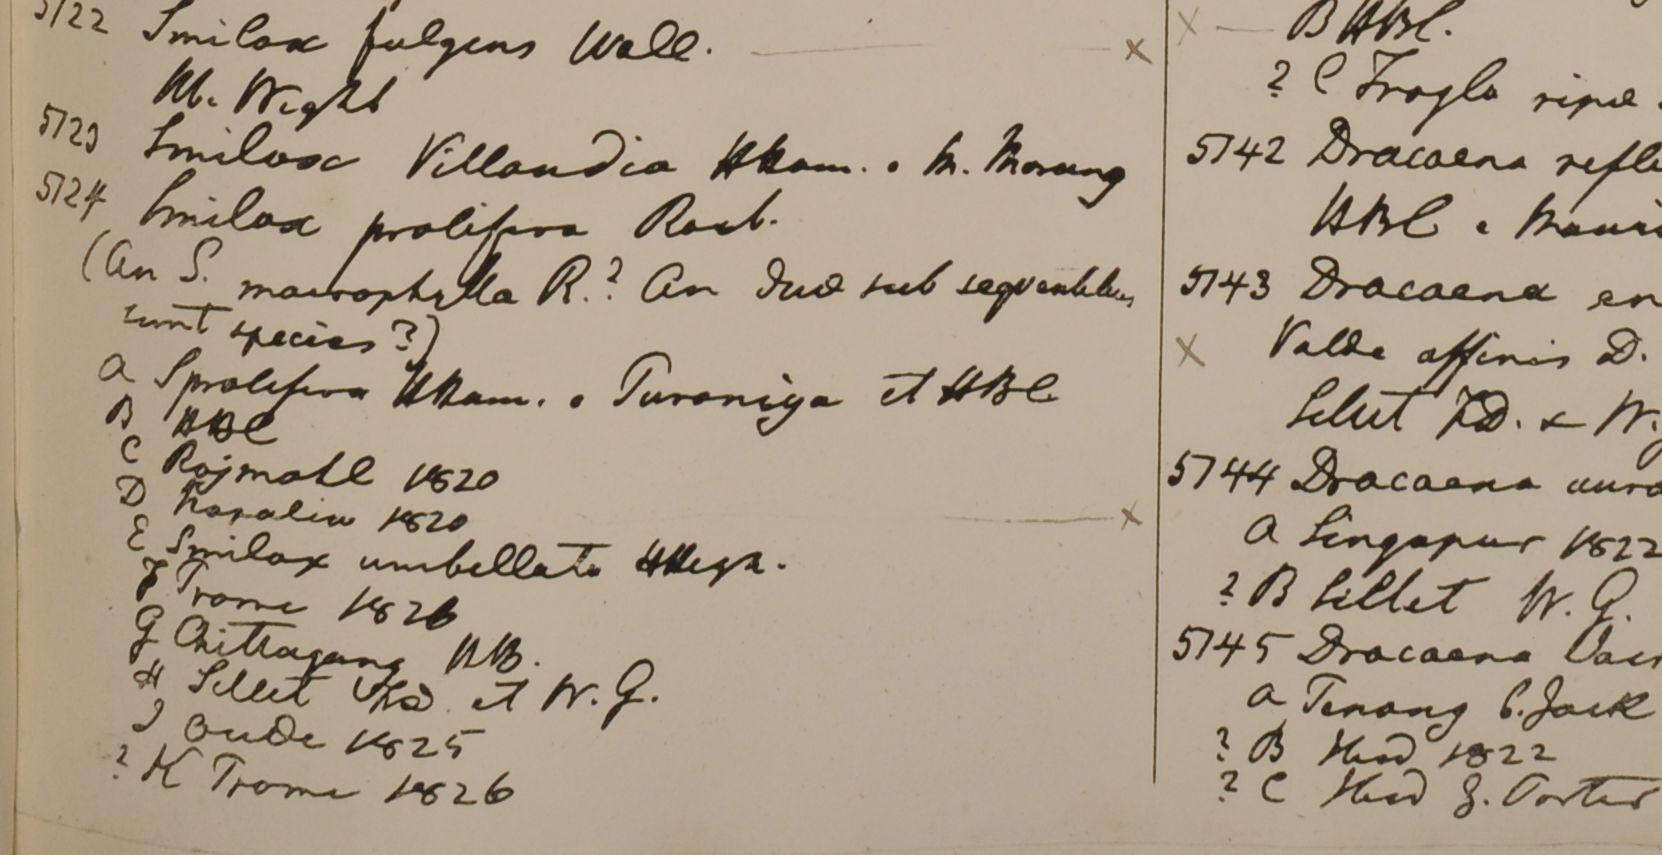 5122 Smilax fulgens Wall.
M. Wight
5123 Smilax Villandia HHam. . M. Morung
5124 Smilax prolifera Roxb.
(An S. macrophylla R.? An duae sub sequentibus
sunt species?)
a S prolifera HHam. . Puraniya et HBC
B HBC
C Rajmahl 1820
D 1820
E Smilax umbellata HHeyn.
F Prome 1826
G Chittagong HB.
H Sillet et W. G.
J Oude 1825
? K Prome 1826
B HBC.
? C ripae
5142 Dracaena refle
HBC . Mauri
5143 Dracaena en
Valde affinis D.
Sillet FD. & W.
5144 Dracaena aura
a Singapur 1822
? B Sillet W. G.
5145 Dracaena
a Penang G. Jack
? B 1822
? C G. Porter